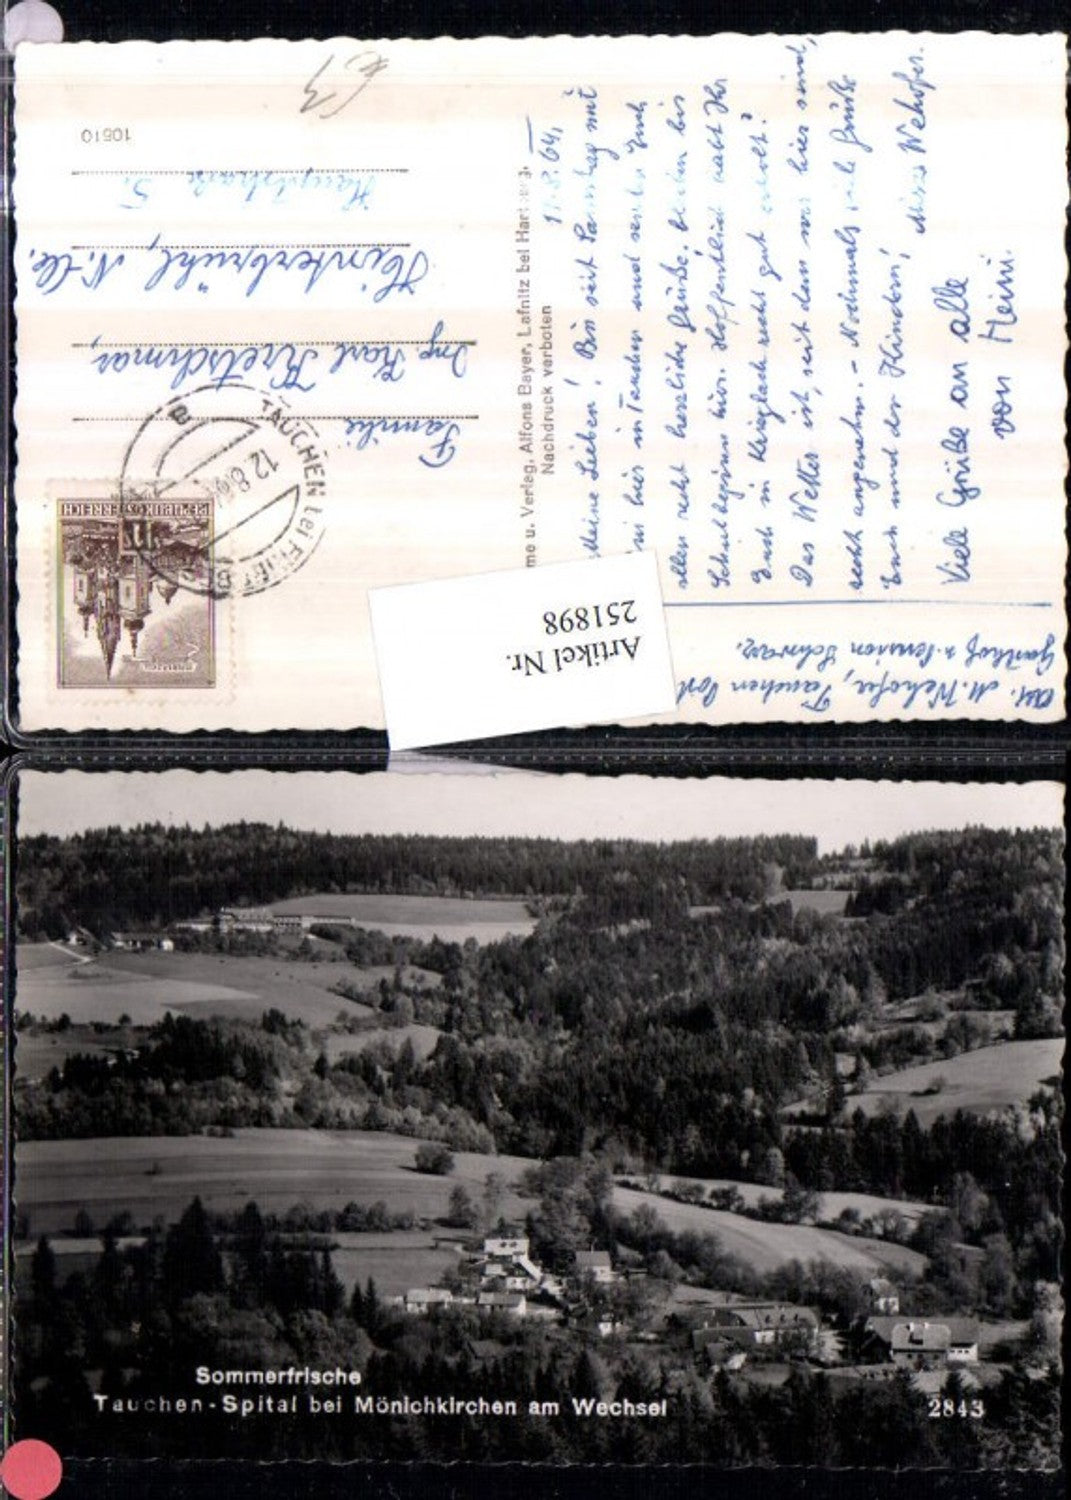 € 3
10610
Familie
Ing. Karl Kretschmar,
Hinterbrühl, N.Ö.
Hauptstraße 5.
TAUCHEN bei FRIEDBERG
12.8.64
REPUBLIK ÖSTERREICH
me u. Verlag, Alfons Bayer, Lafnitz bei Hartberg.
Nachdruck verboten
11.8.64.
Meine Lieben! Bin seit Samstag mit
hier in Tauchen und senden Euch
allen recht herzliche Grüße. bleiben bis
Schulbeginn hier. Hoffentlich habt Ihr
Euch in Krieglach recht gut erholt?
Das Wetter ist, seit dem wir hier sind,
recht angenehm. - Nochmals viele Grüße
Euch und den Kindern, Wehofer.
Viele Grüße an alle
von Heini.
Abs. M. Wehofer, Tauchen Post
Gasthof u. Pension Schwarz.
Artikel Nr.
251898
Sommerfrische
Tauchen-Spital bei Mönichkirchen am Wechsel
2843